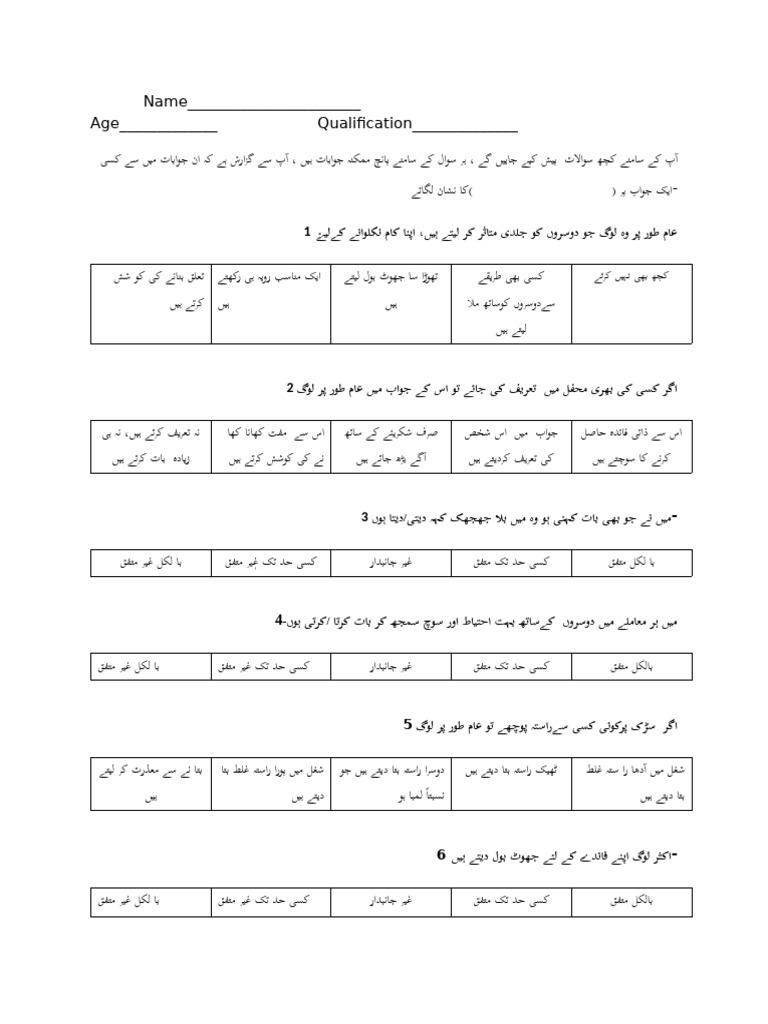 Name_______________________
Age_____________ Qualification______________
آپ کے سامنے کچھ سوالات پیش کیے جاہیں گے ، ہر سوال کے سامنے پانچ ممکنہ جوابات ہیں ، آپ سے گزارش ہے کہ ان جوابات میں سے کسی
-ایک جواب پر ( )کا نشان لگائے
عام طور پر وہ لوگ جو دوسروں کو جلدی متاثر کر لیتے ہیں، اپنا کام نکلوانے کےلیۓ 1
کچھ بھی نہیں کرتے
کسی بھی طریقے
سےدوسروں کوساتھ ملا
لیتے ہیں
تھوڑا سا جھوٹ بول لیتے
ہیں
ایک مناسب رویہ ہی رکھتے
ہیں
تعلق بنانے کی کو شش
کرتے ہیں
اگر کسی کی بھری محفل میں تعریف کی جائے تو اس کے جواب میں عام طور پر لوگ 2
اس سے ذاتی فائدہ حاصل
کرنے کا سوچتے ہیں
جواب میں اس شخص
کی تعریف کردیتے ہیں
صرف شکریئے کے ساتھ
آگے بڑھ جاتے ہیں
اس سے مفت کھانا کھا
نے کی کوشش کرتے ہیں
نہ تعریف کرتے ہیں، نہ ہی
زیادہ بات کرتے ہیں
-میں نے جو بھی بات کہنی ہو وہ میں بلا جھجھک کہہ دیتی/دیتا ہوں 3
با لکل متفق
کسی حد تک متفق
غیر جانبدار
کسی حد تک غیر متفق
با لکل غیر متفق
میں ہر معاملے میں دوسروں کےساتھ بہت احتیاط اور سوچ سمجھ کر بات کرتا /کرتی ہوں-4
بالکل متفق
کسی حد تک متفق
غیر جانبدار
کسی حد تک غیر متفق
با لکل غیر متفق
اگر سڑک پرکوئی کسی سےراستہ پوچھے تو عام طور پر لوگ 5
شغل میں آدھا را ستہ غلط
بتا دیتے ہیں
ٹھیک راستہ بتا دیتے ہیں
دوسرا راستہ بتا دیتے ہیں جو
نسبتاً لمبا ہو
شغل میں پورا راستہ غلط بتا
دیتے ہیں
بتا نے سے معذرت کر لیتے
ہیں
-اکثر لوگ اپنے فائدے کے لئے جھوٹ بول دیتے ہیں 6
بالکل متفق
کسی حد تک متفق
غیر جانبدار
کسی حد تک غیر متفق
با لکل غیر متفق